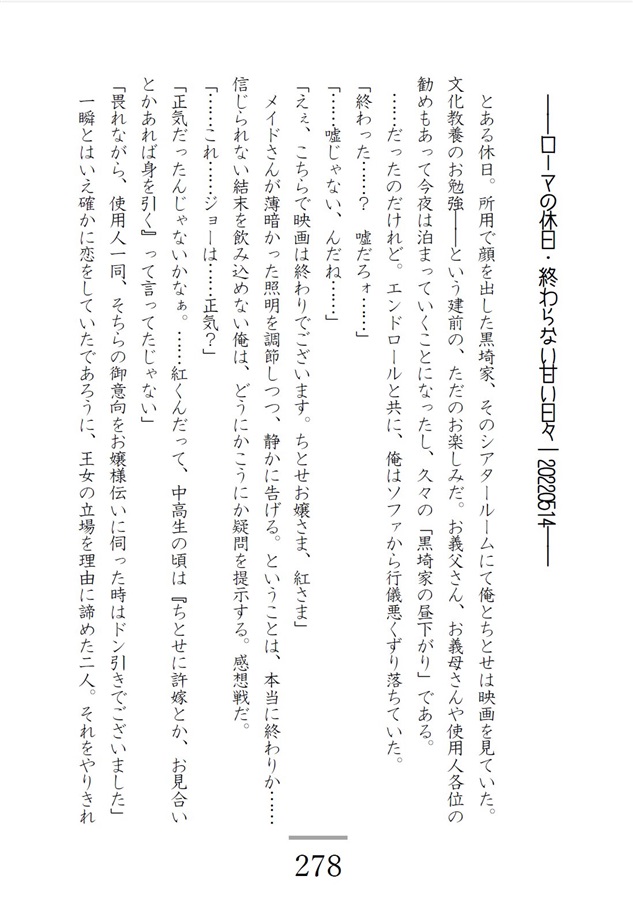 ――ローマの休日・終わらない甘い日々 | 20220514――
　とある休日。所用で顔を出した黒埼家、そのシアタールームにて俺とちとせは映画を見ていた。
文化教養のお勉強――という建前の、ただのお楽しみだ。お義父さん、お義母さんや使用人各位の
勧めもあって今夜は泊まっていくことになったし、久々の「黒埼家の昼下がり」である。
　……だったのだけれど。エンドロールと共に、俺はソファから行儀悪くずり落ちていた。
「終わった……？　嘘だろォ……」
「……嘘じゃない、んだね……」
「えぇ、こちらで映画は終わりでございます。ちとせお嬢さま、紅さま」
　メイドさんが薄暗かった照明を調節しつつ、静かに告げる。ということは、本当に終わりか……
信じられない結末を飲み込めない俺は、どうにかこうにか疑問を提示する。感想戦だ。
「……これ……ジョーは……正気？」
「正気だったんじゃないかなぁ。……紅くんだって、中高生の頃は『ちとせに許嫁とか、お見合い
とかあれば身を引く』って言ってたじゃない」
「畏れながら、使用人一同、そちらの御意向をお嬢様伝いに伺った時はドン引きでございました」
　一瞬とはいえ確かに恋をしていたであろうに、王女の立場を理由に諦めた二人。それをやりきれ
278